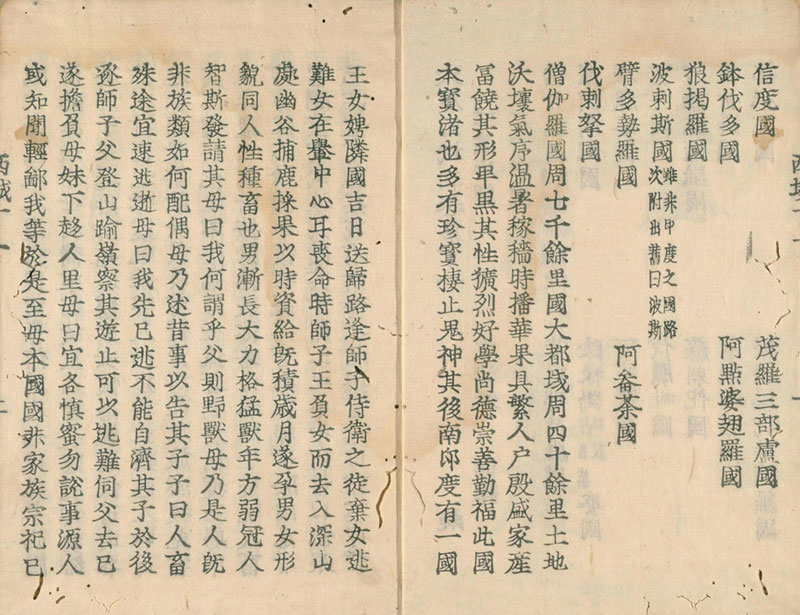 信度國　茂羅三部盧國
鉢伐多國　阿點婆翅羅國
狼揭羅國
波剌斯國雖非印度之國路次附出舊曰波斯
臂多勢羅國　阿軬荼國
伐剌拏國
僧伽羅國周七千餘里國大都城周四十餘里土地
沃壤氣序温暑稼穡時播華果具繁人户殷盛家產
冨饒其形卑黑其性獷烈好學尚德崇善勤福此國
本寶渚也多有珍寶棲止鬼神其後南印度有一國
王女娉隣國吉日送歸路逢師子侍衛之徒棄女逃
難女在轝中心耳喪命時師子王負女而去入深山
處幽谷捕鹿採果以時資給旣積歲月遂孕男女形
貌同人性種畜也男漸長大力格猛獸年方弱冠人
智斯發請其母曰我何謂乎父則野獸母乃是人旣
非族類如何配偶母乃述昔事以告其子子曰人畜
殊途宜速逃逝母曰我先已逃不能自濟其子於後
逐師子父登山踰嶺察其遊止可以逃難伺父去已
遂擔負母妹下趍人里母曰宜各慎蜜勿說事源人
或知聞輕鄙我等於是至母本國國非家族宗祀已
西域十一　一
西域十一　二